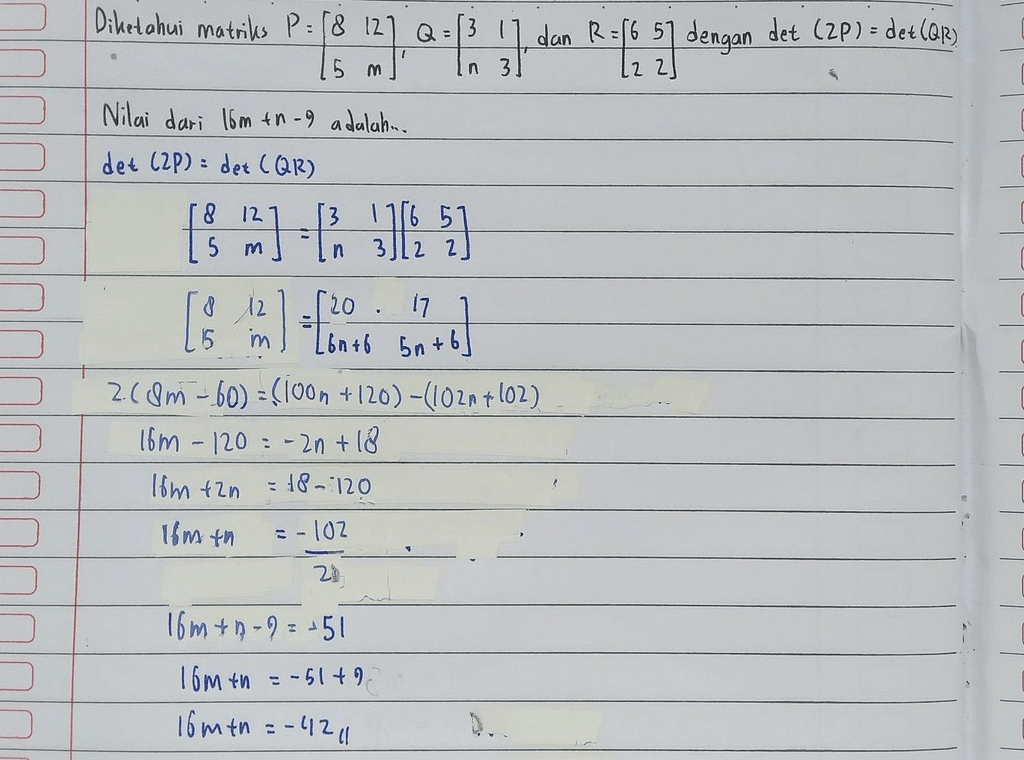 Diketahui matriks P = [8 12], Q = [3 1], dan R = [6 5] dengan det (2P) = det(QR)
[5 m] [n 3] [2 2]
Nilai dari 16m + n - 9 adalah...
det (2P) = det (QR)
[8 12] = [3 1][6 5]
[5 m] [n 3][2 2]
[8 12] = [20 . 17]
[5 m] [6n+6 5n+6]
2.(8m - 60) = (100n + 120) - (102n + 102)
16m - 120 = -2n + 18
16m + 2n = 18 - 120
16m + n = -102
2
16m + n - 9 = -51
16m + n = -51 + 9
16m + n = -42 //
D..